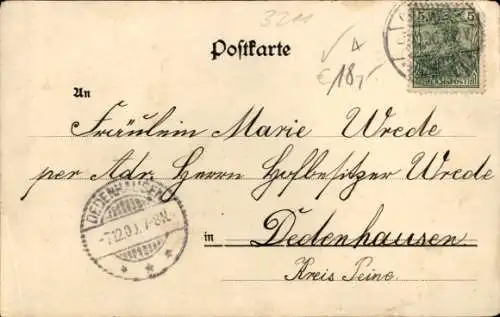 3211
Postkarte
€ 18,-
An
5 5
Fräulein Marie Wrede
per Adr. Herrn Hofbesitzer Wrede
DEDENHAUSEN
in Dedenhausen.
Kreis Peine.